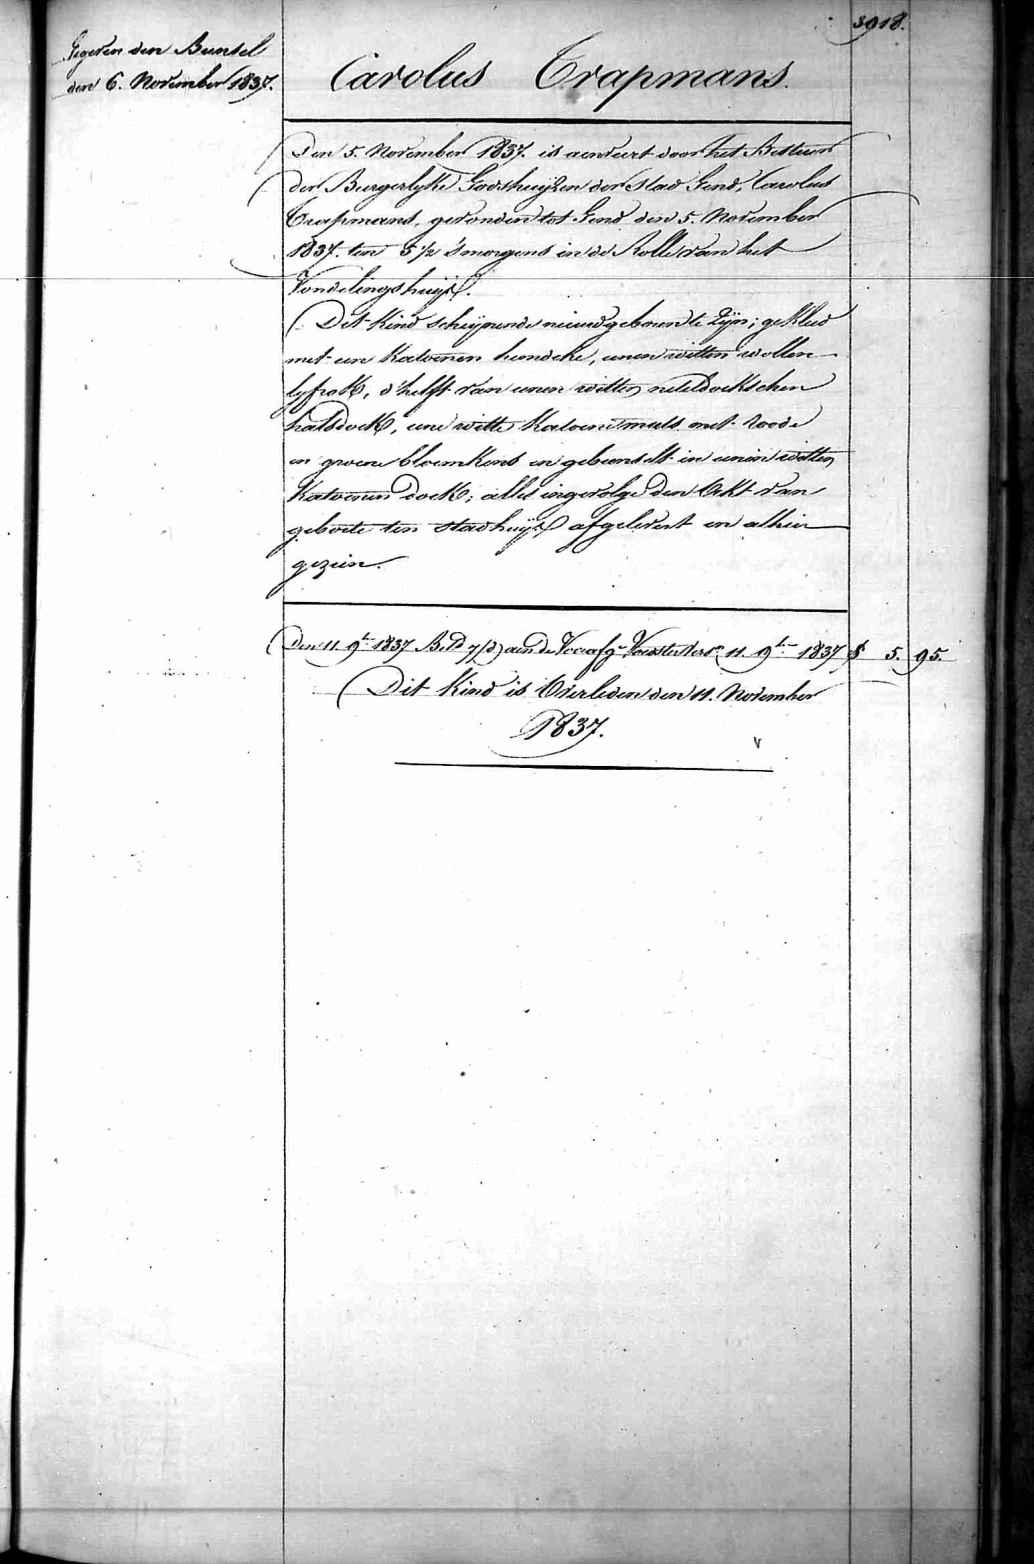 3918.
Gegeven den Bunsel
den 6. November 1837.
Carolus Trapmans.
Den 5. November 1837. is aenveert door het Bestuur
der Burgerlyke Godshuijzen der stad Gend, Carolus
Trapmans, gevonden tot Gend den 5. November
1837. ten 5 1/2 smorgens in de Rolle van het
Vondelingshuijs.
Dit Kind scheijnende nieuwgeboren te zijn; gekleed
met een Katoenen hemdeke, eenen witten wollen
lyfrok, d'helft van eenen witten neteldoekschen
halsdoek, eene witte Katoene muts met roode
en groene bloemkens en gebunselt in eenen witten
Katoenen doek; alles ingevolge den Akt van
geboote ten stadhuijse afgelevert en alhier
gezien.
Den 11. 9b 1837 Betd aen de 11. 9b 1837 $ 5. 95.
Dit Kind is Overleden den 11. November
1837.